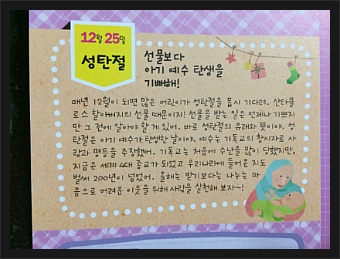 12월 25일
성탄절
선물보다
아기 예수 탄생을
기뻐해!
매년 12월이 되면 많은 어린이가 성탄절을 몹시 기다려. 산타클
로스 할아버지의 선물 때문이지! 선물을 받는 일은 언제나 기쁘지
만 그 전에 알아야 할 게 있어. 바로 성탄절의 유래와 뜻이야. 성
탄절은 아기 예수가 탄생한 날이야. 예수는 기독교의 창시자로 사
랑과 평등을 주장했어. 기독교는 처음에 수난을 많이 당했지만,
지금은 세계 4대 종교가 되었고 우리나라에 들어온 지도
벌써 200년이 넘었어. 올해는 받기보다는 나누는 마
음으로 어려운 이웃을 위해 사랑을 실천해 보자~!